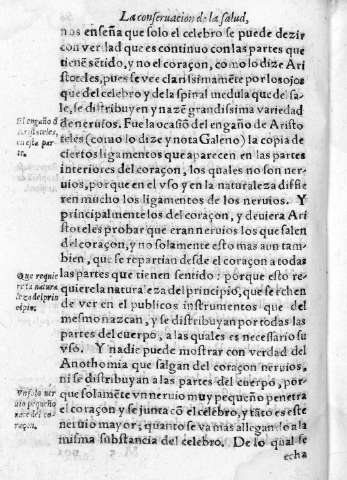 La conseruacion de la salud,
nos enseña que solo el celebro se puede dezir
con verdad que es continuo con las partes que
tienē sētido, y no el coraçon, como lo dize Ari
stoteles, pues se vee clarissimamēte por los ojos
que del celebro y de la spinal medula que del sa-
le, se distribuyen y nazē grandissima variedad
de neruios. Fue la ocasiō del engaño de Aristo
teles (como lo dize y nota Galeno) la copia de
ciertos ligamentos que aparecen en las partes
interiores del coraçon, los quales no son ner-
uios, porque en el vso y en la naturaleza diffie
ren mucho los ligamentos de los neruios. Y
principalmente los del coraçon, y deuiera Ari
stoteles probar que eran neruios los que salen
del coraçon, y no solamente esto mas aun tam-
bien, que se repartian desde el coraçon a todas
las partes que tienen sentido: porque esto re-
quiere la naturaleza del principio, que se echen
de ver en el publicos instrumentos que del
mesmo nazcan, y se distribuyan por todas las
partes del cuerpo, a las quales es necessario su
vso. Y nadie puede mostrar con verdad del
Anothomia que salgan del coraçon neruios,
ni se distribuyan a las partes del cuerpo, por-
que solamēte vn neruio muy pequeño penetra
el coraçon y se junta cō el celebro, y tāto es este
neruio mayor; quanto se va mas allegando a la
misma substancia del celebro. De lo qual se
echa
El engaño d
Aristoteles,
en esta par
te.
Que requie
re la natura
leza del prin
cipio.
Vn solo ner
uio pequeño
nace del co-
raçon.